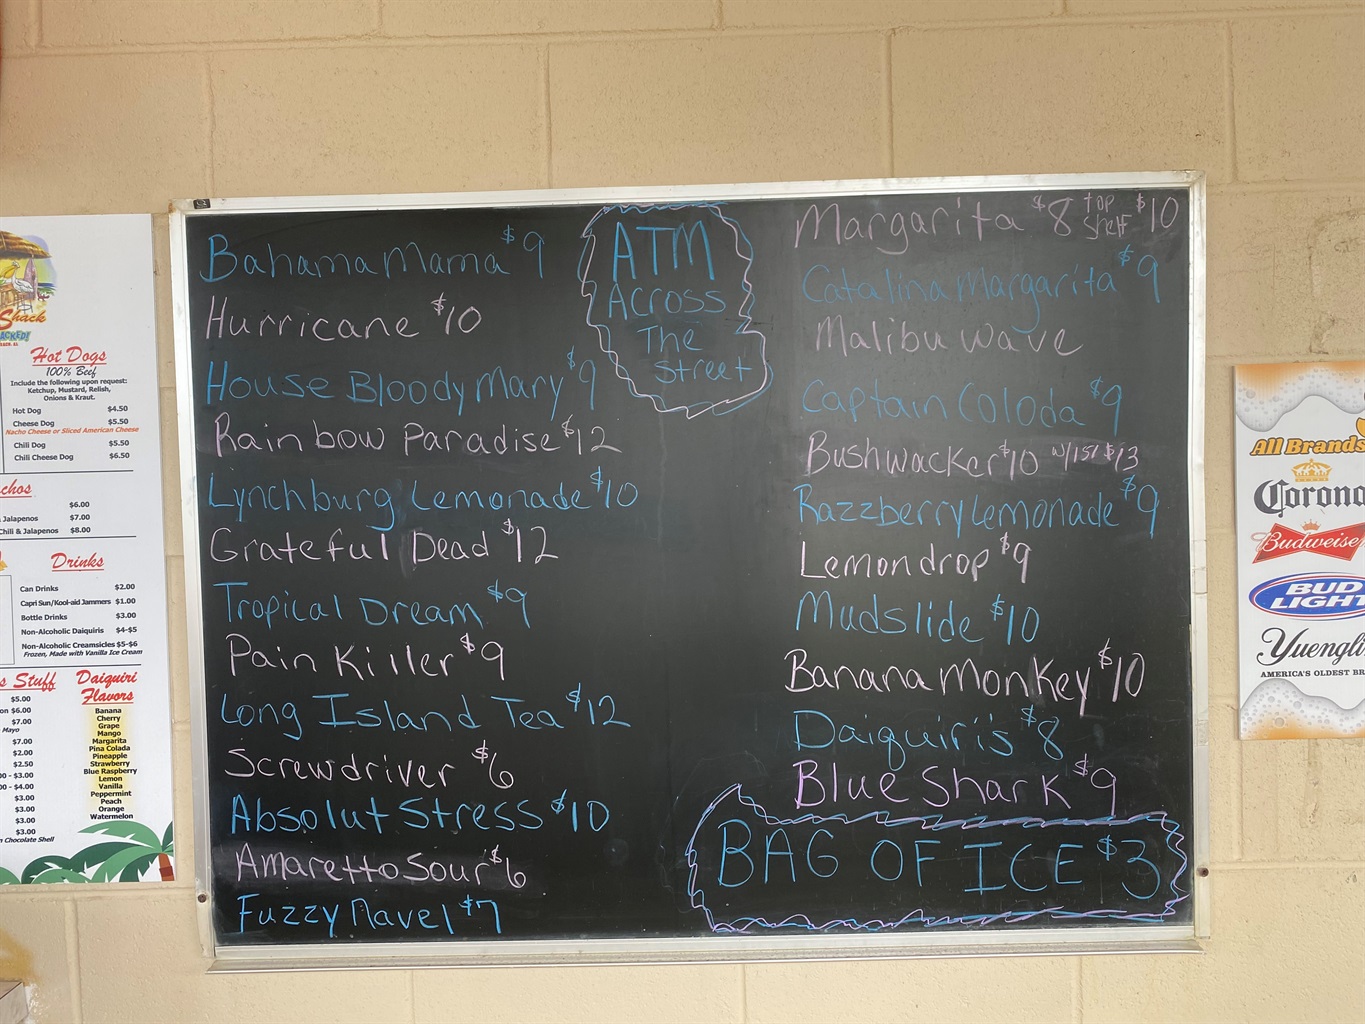 Shack
Hot Dogs
100% Beef
Include the following upon request:
Ketchup, Mustard, Relish,
Onions & Kraut.
Hot Dog $4.50
Cheese Dog $5.50
Nacho Cheese or Sliced American Cheese
Chili Dog $5.50
Chili Cheese Dog $6.50
$6.00
Jalapenos $7.00
Chili & Jalapenos $8.00
Drinks
Can Drinks $2.00
Capri Sun/Kool-aid Jammers $1.00
Bottle Drinks $3.00
Non-Alcoholic Daiquiris $4-$5
Non-Alcoholic Creamsicles $5-$6
Frozen, Made with Vanilla Ice Cream
Stuff
$5.00
$6.00
$7.00
Mayo
$7.00
$2.00
$2.50
- $3.00
- $4.00
$3.00
$3.00
$3.00
$3.00
Chocolate Shell
Daiquiri
Flavors
Banana
Cherry
Grape
Mango
Margarita
Pina Colada
Pineapple
Strawberry
Blue Raspberry
Lemon
Vanilla
Peppermint
Peach
Orange
Watermelon
Bahama Mama $9
Hurricane $10
House Bloody Mary $9
Rainbow Paradise $12
Lynchburg Lemonade $10
Grateful Dead $12
Tropical Dream $9
Pain Killer $9
Long Island Tea $12
Screwdriver $6
Absolut Stress $10
Amaretto Sour $6
Fuzzy Navel $7
ATM
Across
The
Street
Margarita $8 top shelf $10
Catalina Margarita $9
Malibu Wave
Captain Coloda $9
Bushwacker $10 w/151 $13
Razzberry Lemonade $9
Lemondrop $9
Mudslide $10
Banana Monkey $10
Daiquiri's $8
Blue Shark $9
BAG OF ICE $3
All Brands
Corona
Budweiser
BUD
LIGHT
Yuengling
AMERICA'S OLDEST